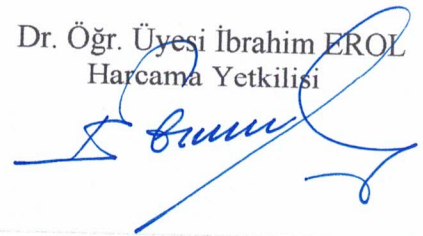 Dr. Öğr. Üyesi İbrahim EROL
Harcama Yetkilisi